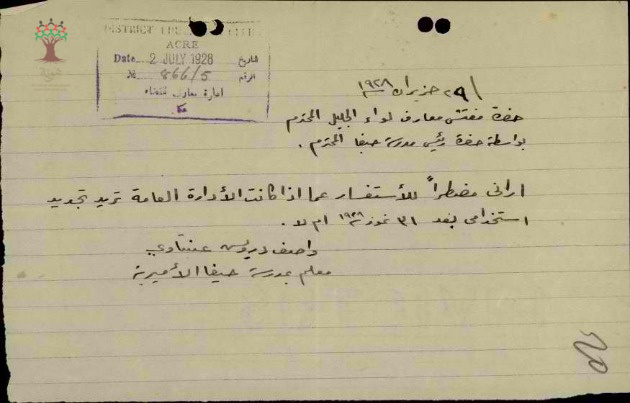 DISTRICT
ACRE
Date 2 JULY 1928 التاريخ
№ 866/5 الرقم
ادارة معارف قضاء
عكا
٢٩ حزيران ١٩٢٨
حضرة مفتش معارف لواء الجليل المحترم
بواسطة حضرة رئيس مدرسة حيفا المحترم .
اراني مضطراً للأستفسار عما اذا كانت الأدارة العامة تريد تجديد
استخدامي بعد ٣١ تموز ١٩٢٨ ام لا .
واصف درويش عنبتاوي
معلم بمدرسة حيفا الأميرية